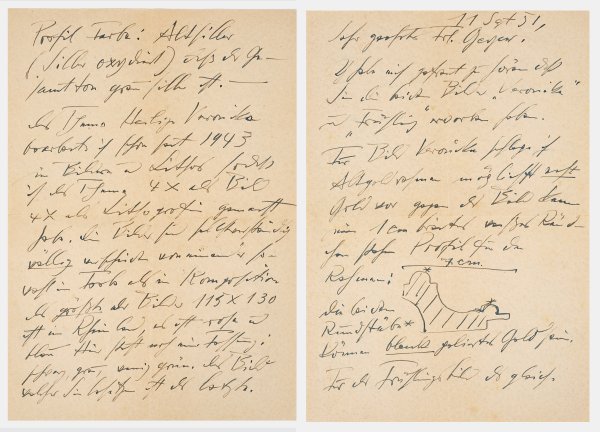 Profil Farbe: Altsilber
(Silber oxydiert) daß der Ge-
samtton grau silber ist. —
Das Thema Heilige Veronika
bearbeite ich schon seit 1943
in Bildern u Lithos sodaß
ich das Thema 4 X als Bild
4 X als Lithografie gemacht
habe. Die Bilder sind
völlig verschieden voneinander so-
wohl in Farbe als in Komposition
das größte als Bild 115 X 130
ist im Rheinland, es ist rosa u
blau
schwarz, grau, wenig grün. Das Bild
welches Sie besitzen ist das letzte.
11 Sept 51,
Sehr geehrtes Frl. Geyer.
Ich habe mich gefreut zu hören daß
Sie die beiden Bilder „Veronika"
u „Frühling" erworben haben.
Für Bild Veronika schlage ich
Altgoldrahmen möglichst
Gold vor gegen das Bild kann
ein 1 cm breiter weißer Ränd-
chen stehen Profil für den
Rahmen:
7 cm.
die beiden
Rundstäbe x
können blank poliertes Gold sein.
Für das Frühlingsbild desgleich.